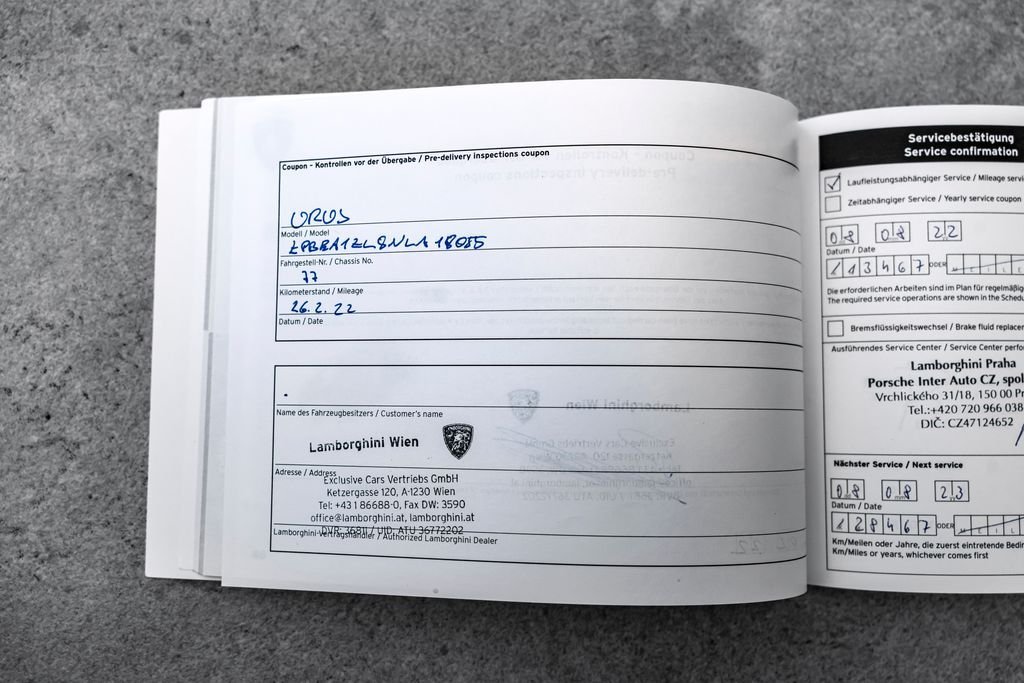 Coupon - Kontrollen vor der Übergabe / Pre-delivery inspections coupon
URUS
Modell / Model
Fahrgestell-Nr. / Chassis No.
77
Kilometerstand / Mileage
26.2.22
Datum / Date
Name des Fahrzeugbesitzers / Customer's name
Lamborghini Wien
Adresse / Address
Exclusive Cars Vertriebs GmbH
Ketzergasse 120, A-1230 Wien
Tel: +43 1 86688-0, Fax DW: 3590
office@lamborghini.at, lamborghini.at
DVR: 36811 / UID: ATU 36772202
Lamborghini-Vertragshändler / Authorized Lamborghini Dealer
Servicebestätigung
Service confirmation
Laufleistungsabhängiger Service / Mileage servi
Zeitabhängiger Service / Yearly service coupon
08 08 22
Datum / Date
113467 ODER
Die erforderlichen Arbeiten sind im Plan für regelmäßig
The required service operations are shown in the Schedu
Bremsflüssigkeitswechsel / Brake fluid replacem
Ausführendes Service Center / Service Center perfo
Lamborghini Praha
Porsche Inter Auto CZ, spol
Vrchlického 31/18, 150 00 Pr
Tel.:+420 720 966 038
DIČ: CZ47124652
Nächster Service / Next service
08 08 23
Datum / Date
128467 ODER
Km/Meilen oder Jahre, die zuerst eintretende Bedin
Km/Miles or years, whichever comes first